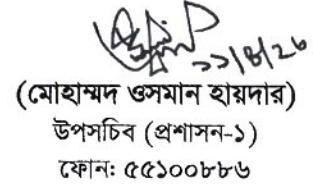 ১১/৪/২৬
(মোহাম্মদ ওসমান হায়দার)
উপসচিব (প্রশাসন-১)
ফোন: ৫৫১০০৮৮৬